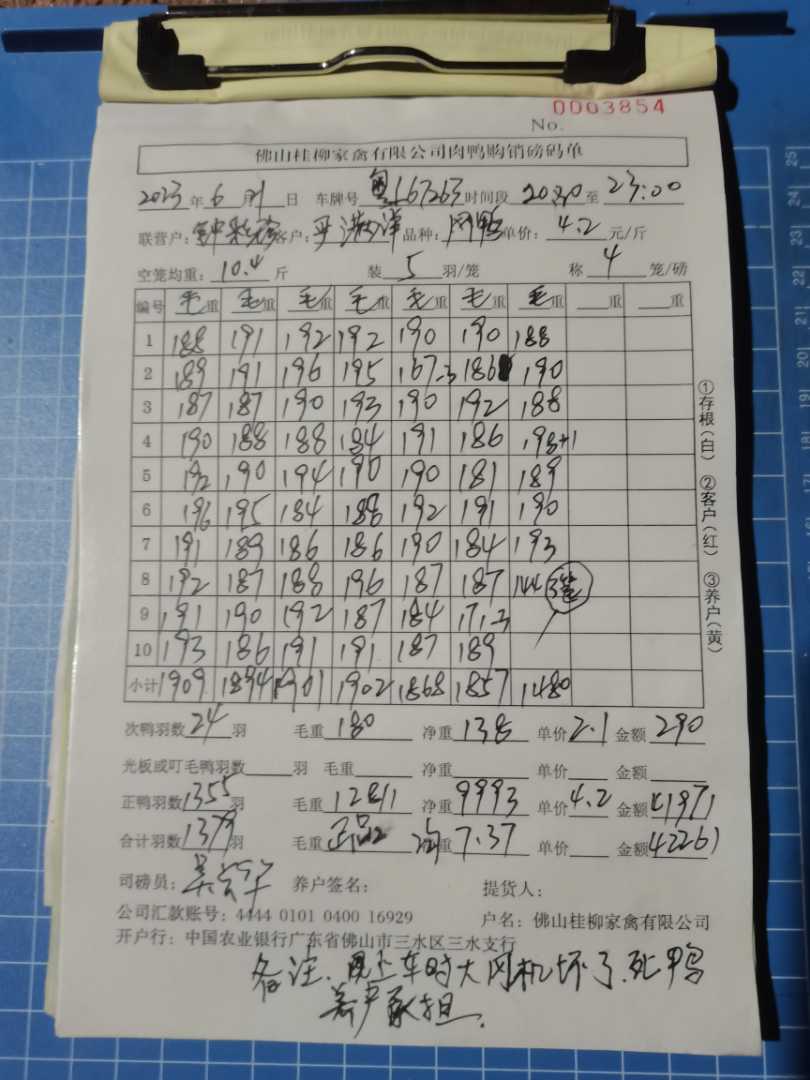 0003854
No.
佛山桂柳家禽有限公司肉鸭购销磅码单
2023年6月21日 车牌号 粤 67263 时间段 20:30 至 23:00
联营户： 客户： 品种： 鸭 单价：4.2元/斤
空笼均重：10.4斤 装5羽/笼 称4笼/磅
编号 毛重 毛重 毛重 毛重 毛重 毛重 毛重 重 重
1 188 191 192 192 190 190 188
2 189 191 196 195 167-3 186 190
3 187 187 190 193 190 192 188
4 190 188 188 184 191 186 193+1
5 192 190 194 190 190 181 189
6 196 195 184 188 192 191 190
7 191 189 186 186 190 184 193
8 192 187 188 196 187 187 144 3笼
9 191 190 192 187 184 171-3
10 193 186 191 191 187 189
小计 1909 1894 1901 1902 1868 1857 1480
①存根(白) ②客户(红) ③养户(黄)
次鸭羽数24羽 毛重180 净重138 单价2.1 金额290
光板或叮毛鸭羽数 羽 毛重 净重 单价 金额
正鸭羽数1355羽 毛重12811 净重9993 单价4.2 金额41971
合计羽数1379羽 毛重 重7.37 单价 金额42261
司磅员： 养户签名： 提货人：
公司汇款账号：4444 0101 0400 16929 户名：佛山桂柳家禽有限公司
开户行：中国农业银行广东省佛山市三水区三水支行
备注、 上车时大风机坏了.死鸭
养户承担.